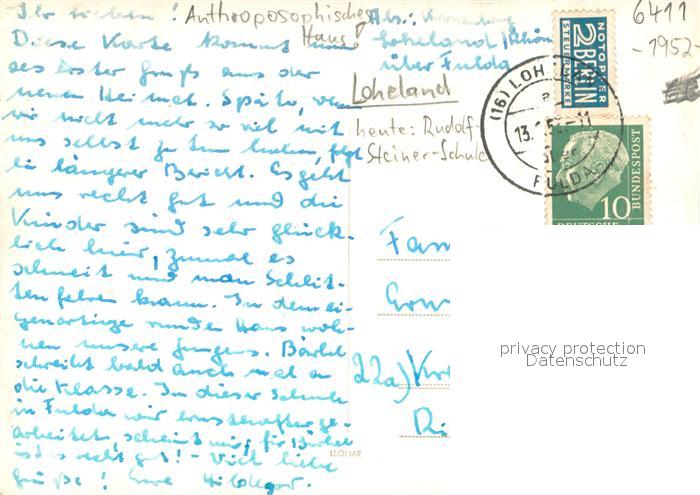 Ihr Lieben!
Diese Karte kommt nun
als Erster Gruß aus der
neuen Heimat. Später, wenn
wir nicht mehr so viel mit
uns selbst zu tun haben, folgt
ein längerer Bericht. Es geht
uns recht gut und die
Kinder sind sehr glück-
lich hier, zumal es
schneit und man Schlit-
ten fahren kann. In dem ei-
genartige runden Haus woh-
nen unsere Jungens. Bärbel
schreibt bald auch mal an
die Klasse. In dieser Schule
in Fulda wir ernsthafter ge-
arbeitet, scheint mir, für Bärbel
ist es recht gut! - Viel liebe
Grüße! Eure Hildegar.
Anthroposophisches
Haus!
Abs.:
Loheland
über Fulda
Loheland
heute: Rudolf
Steiner-Schule
6411
-1952-
NOTOPFER
2 BERLIN
STEUERMARKE
(16) LOH
13.
FULDA
10
BUNDESPOST
DEUTSCHE
Fam
22a)
privacy protection
Datenschutz
LEOMAR